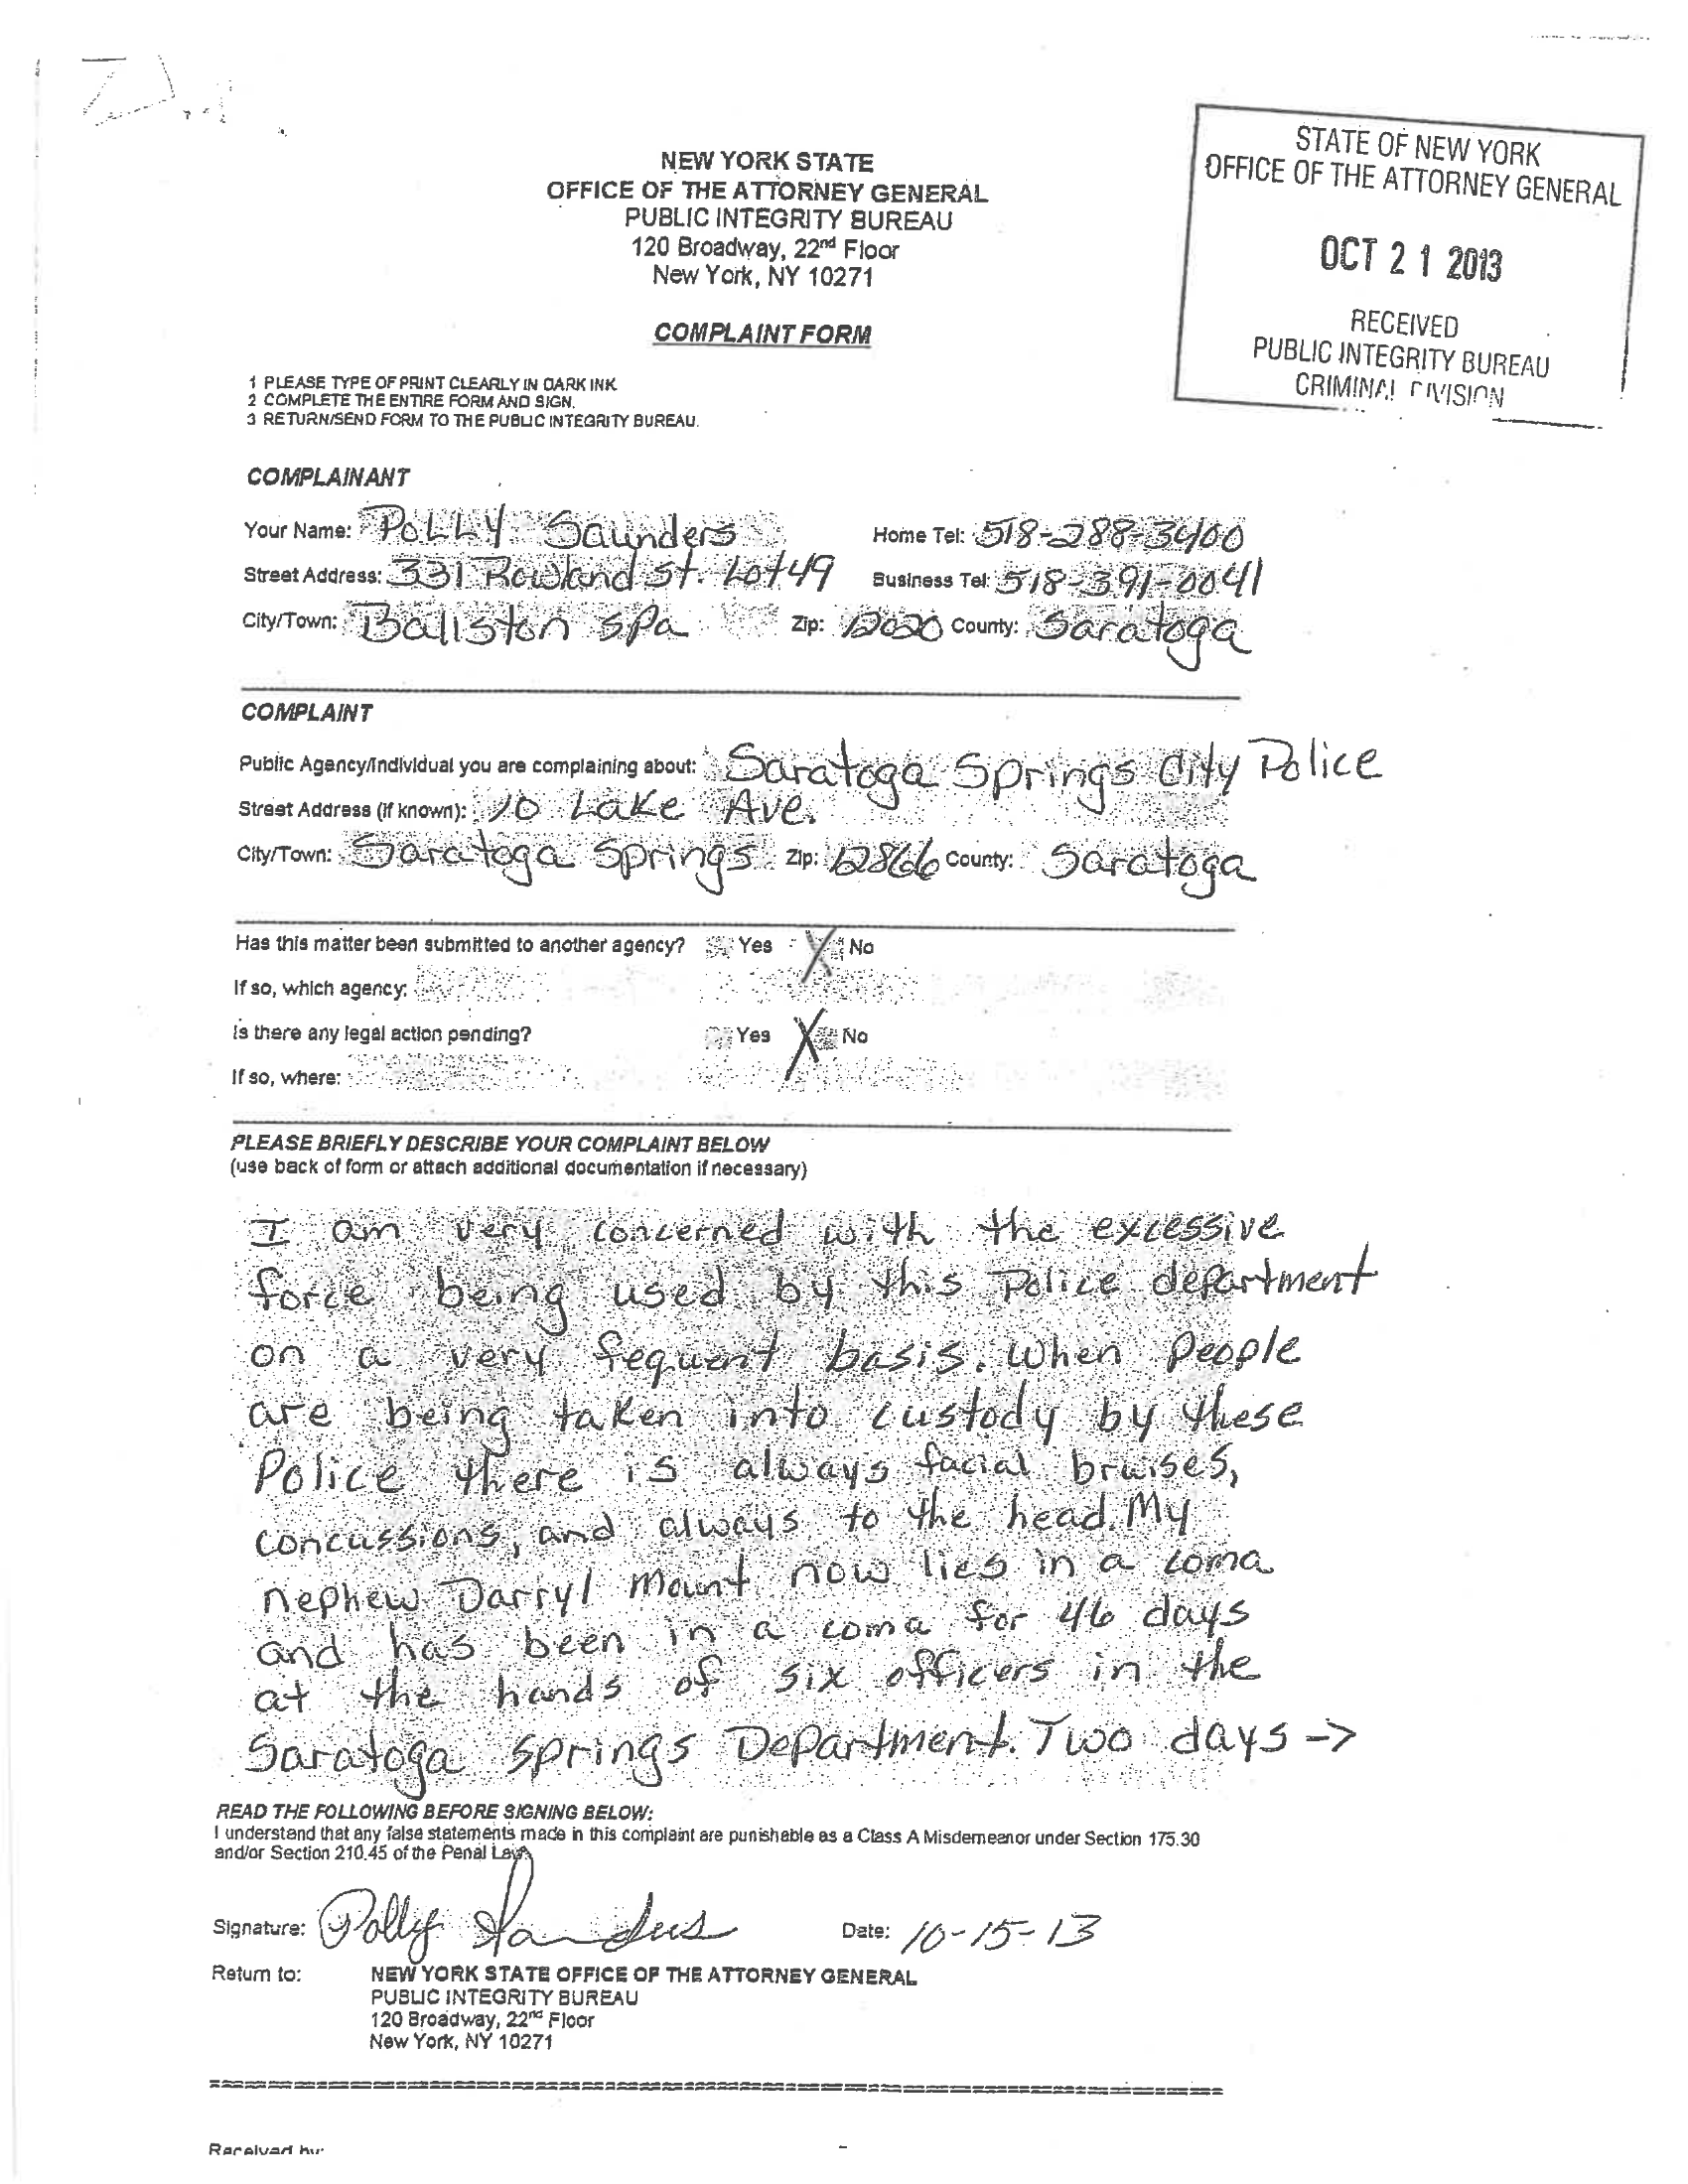 NEW YORK STATE
OFFICE OF THE ATTORNEY GENERAL
PUBLIC INTEGRITY BUREAU
120 Broadway, 22nd Floor
New York, NY 10271
COMPLAINT FORM
STATE OF NEW YORK
OFFICE OF THE ATTORNEY GENERAL
OCT 21 2013
RECEIVED
PUBLIC INTEGRITY BUREAU
CRIMINAL DIVISION
1 PLEASE TYPE OF PRINT CLEARLY IN DARK INK
2 COMPLETE THE ENTIRE FORM AND SIGN.
3 RETURN/SEND FORM TO THE PUBLIC INTEGRITY BUREAU.
COMPLAINANT
Your Name: Polly Saunders Home Tel: 518-288-3400
Street Address: 331 Rowland St. Lot 49 Business Tel: 518-391-0041
City/Town: Baliston SPa Zip: 12020 County: Saratoga
COMPLAINT
Public Agency/Individual you are complaining about: Saratoga Springs City Police
Street Address (if known): 10 Lake Ave.
City/Town: Saratoga Springs Zip: 12866 County: Saratoga
Has this matter been submitted to another agency? Yes X No
If so, which agency:
Is there any legal action pending? Yes X No
If so, where:
PLEASE BRIEFLY DESCRIBE YOUR COMPLAINT BELOW
(use back of form or attach additional documentation if necessary)
I am very concerned with the excessive
force being used by this Police department
on a very fequent basis. When People
are being taken into custody by these
Police there is always facial bruises,
concussions, and always to the head. My
nephew Darryl Mount now lies in a coma
and has been in a coma for 46 days
at the hands of six officers in the
Saratoga Springs Department. Two days ->
READ THE FOLLOWING BEFORE SIGNING BELOW:
I understand that any false statements made in this complaint are punishable as a Class A Misdemeanor under Section 175.30
and/or Section 210.45 of the Penal Law.
Signature: Polly Saunders Date: 10-15-13
Return to: NEW YORK STATE OFFICE OF THE ATTORNEY GENERAL
PUBLIC INTEGRITY BUREAU
120 Broadway, 22nd Floor
New York, NY 10271
Received by: